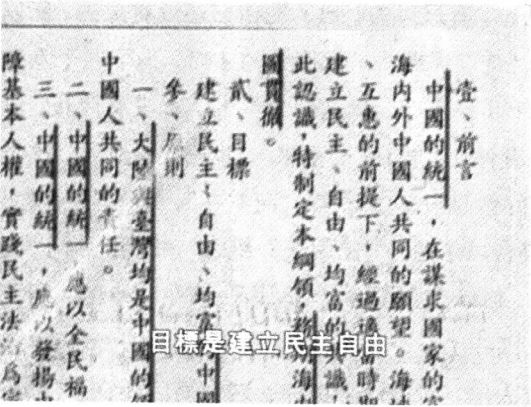 壹、前言
中國的統一，在謀求國家的富
海內外中國人共同的願望。海
、互惠的前提下，經過適當時期
建立民主、自由、均富的識
此認識，特制定本綱領，務海內
圖貫徹。
貳、目標
建立民主、自由、均富中國
參、原則
一、大陸與臺灣均是中國的
中國人共同的責任。
二、中國的統一，應以全民福
三、中國的統一，應以發揚中
障基本人權，實踐民主法治為宗
目標是建立民主自由